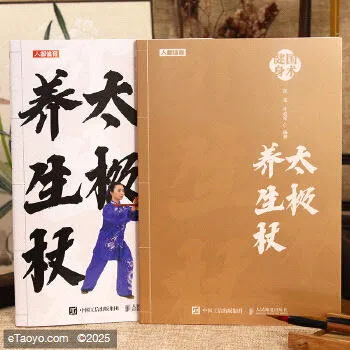 人邮体育
太极
养生杖
中国工信出版集团
人邮体育
国术
健身
太极
养生杖
中国工信出版集团
人民邮电出版社
eTaoyo.com ©2025